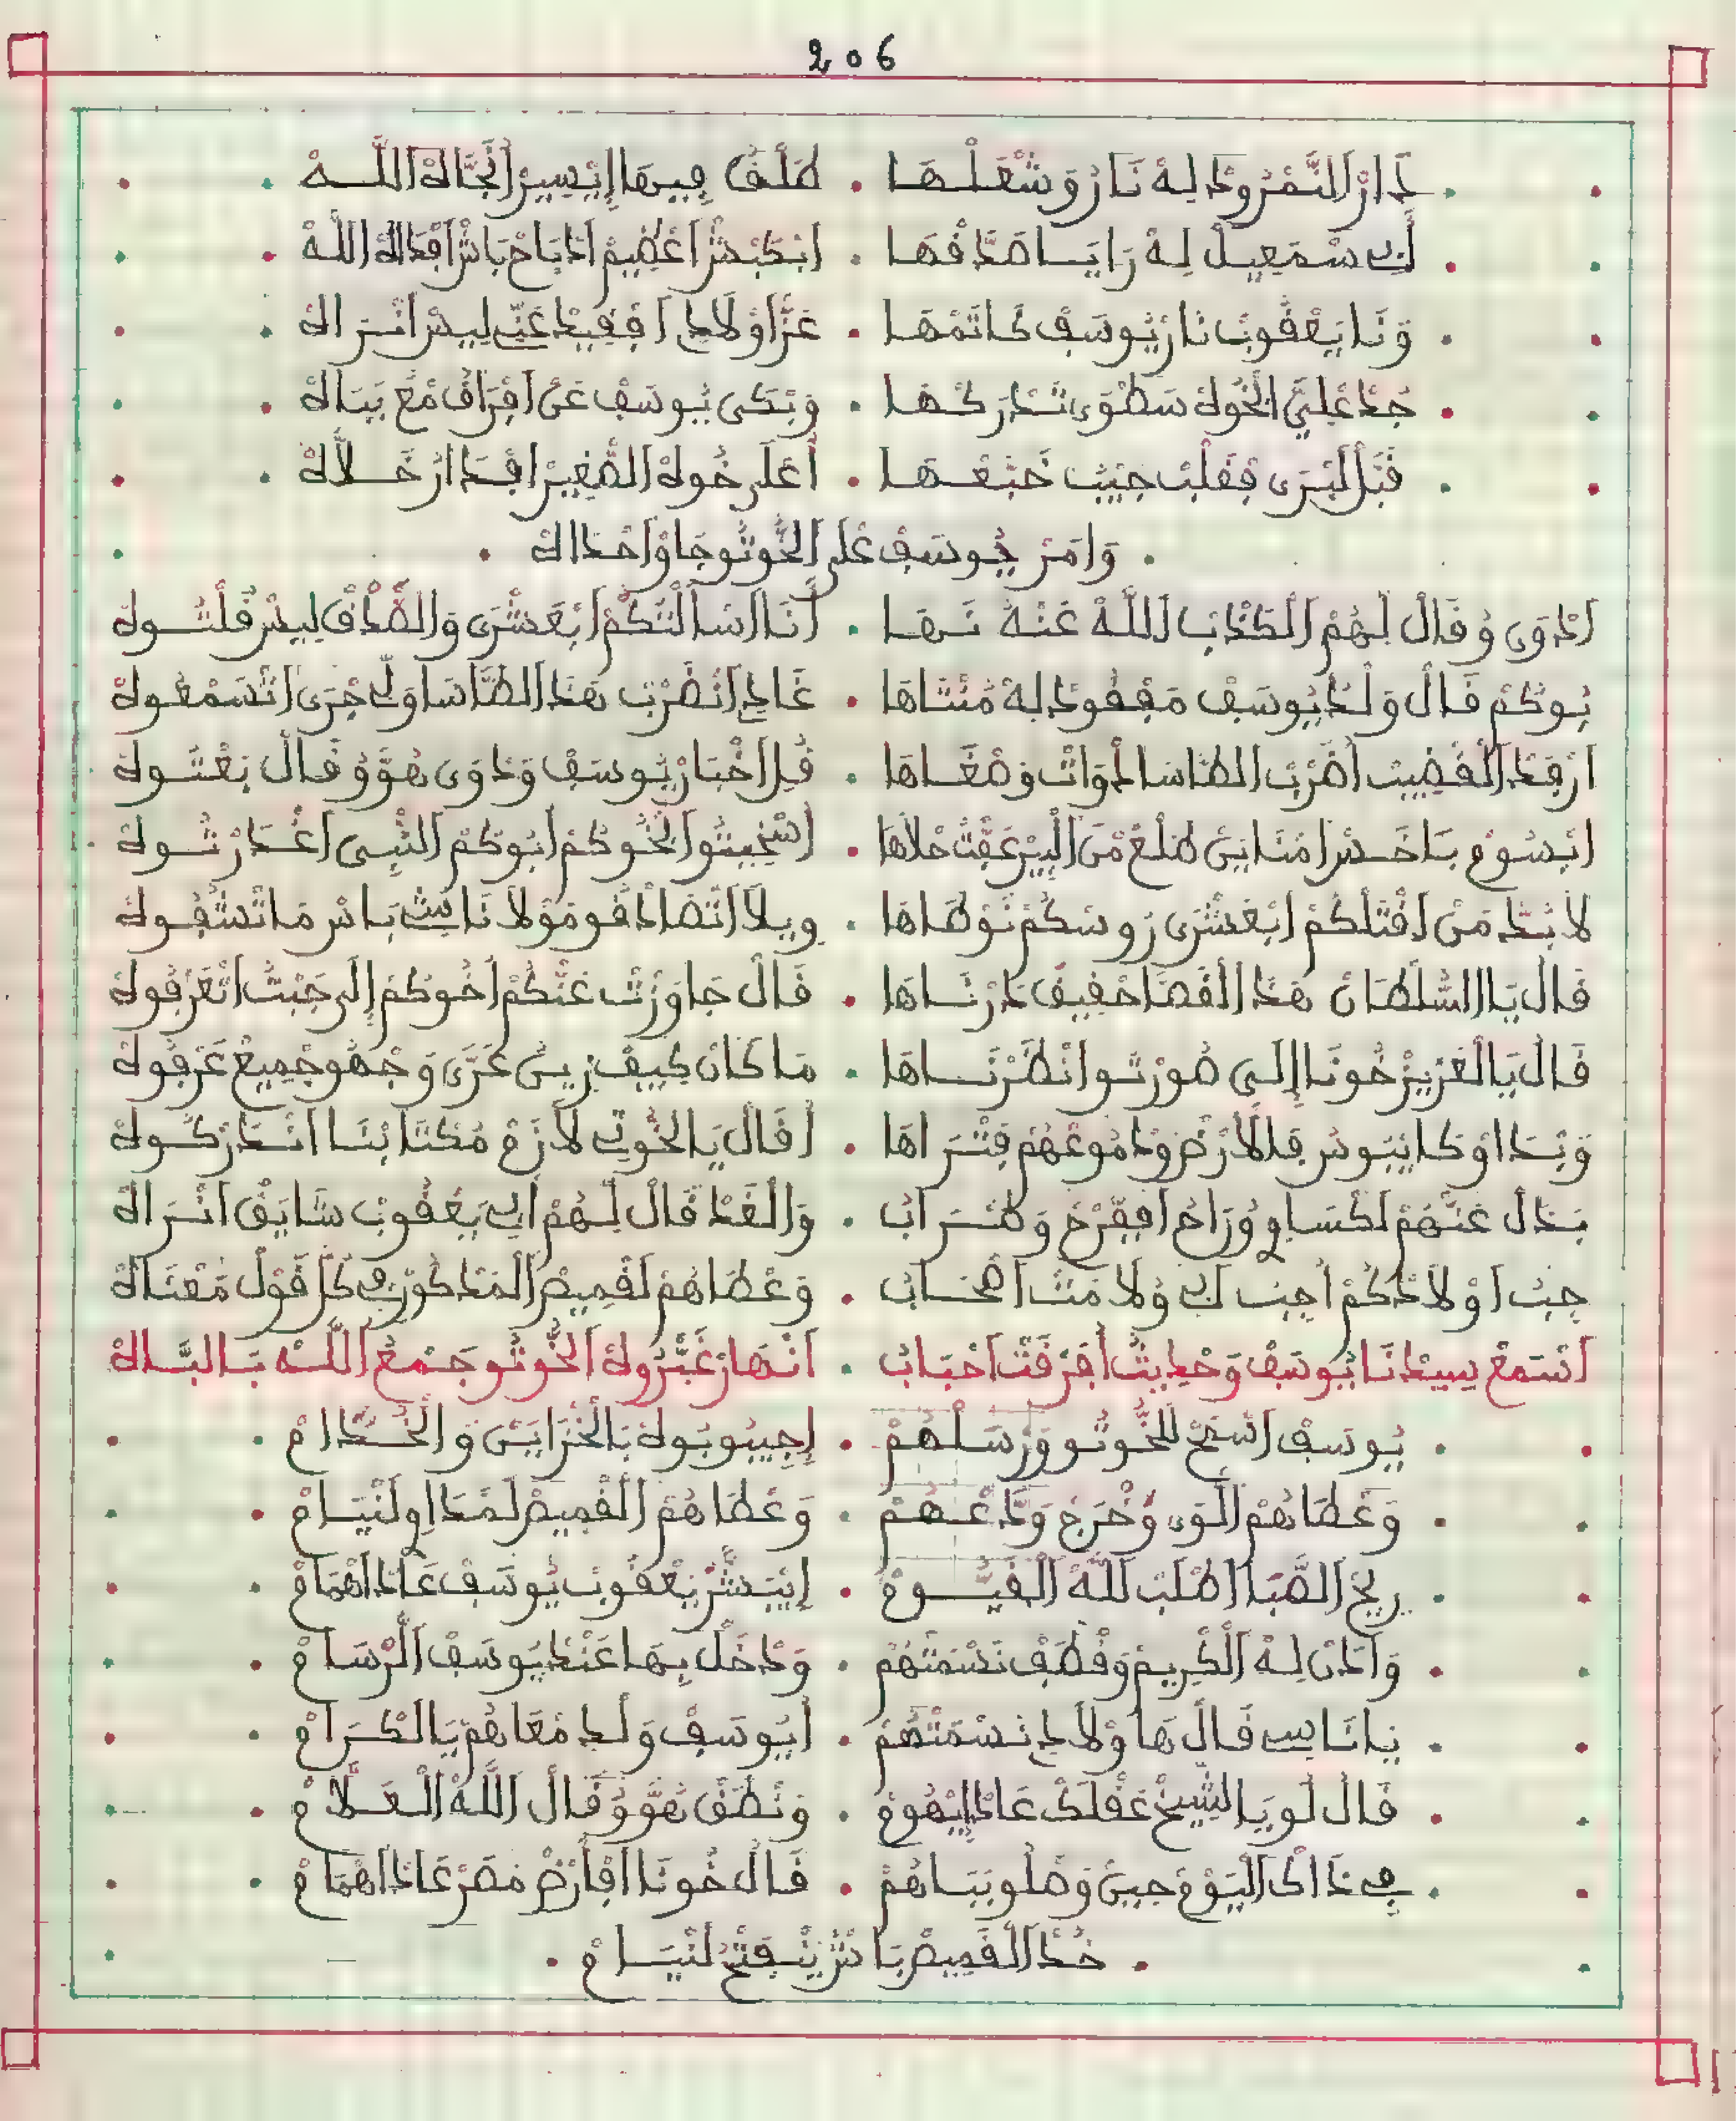 206
دَارْ اَلنَّمْرُودْ لِهْ نَارُ وَشْعَلْهَا . طَلْقُ فِيهَا إِيْسِيرْ اَنْجَّاهْ اَللَّــهْ
أَبِي سْمَعِيلْ لِهْ رَايَــا صَدَّقْهَا . اَبْكَبْشْ اَعْظِيمْ اَدْبَاحْ بَاشْ اَفْدَاهْ اَللَّهْ
وَنَا يَعْقُوبْ نَارْ يُوسَفْ كَاتَمْهَا . عَزّْ اَوْلَادِي اَفْقِيدْ عَنِّي لِيسْ اَنْــرَاهْ
جِدْ عْلِيَّ اَلْخُوهْ سَطْوَى تَــدْرَكْهَا . وَبْكَى يُوسَفْ عَنْ اَفْرَاقْ مْعَ بَبَــاهْ
قَبْلْ لَبْرَى فِقَلْبْ حِبِيبْ خَبْعْــهَا . أَعْلَى خُوهْ اَلصّْغِيرْ اَفْدَارْ خَــلَّاهْ
وَامَرْ يُوسَفْ عْلَى اَلْخُّوتُو جَاوْ اَحْدَاهْ
اَدْوَى وُقَالْ لَهُمْ اَلْكَذْبْ اَللَّهْ عَنْهُ نَــهَا . أَنَا اَسَالْتَكُمْ اَبْعَشْرَى وَالصَّدْقْ لِيسْ قُلْتُــوهْ
بُوكُمْ قَالْ وَلْدُ يُوسَفْ مَفْقُودْ لِهْ مُنْتَاهَا . غَادِي اَنْضْرَبْ هَذَا اَلطَّاسَا وَلِّي جْرَى اَتْسَمْعُوهْ
اَرْفَدْ اَلْقْضِيبْ اَضْرَبْ اَلطَّاسَا دْوَاتْ وَصْغَــاهَا . قُلْ اَخْبَارْ يُوسَفْ وَدْوَى هُوَّ وُقَالْ بَعْتُــوهْ
اَبْسُومْ بَاخَــسْ اَمْنَايَنْ طْلَعْ مْنْ اَلْبِيرْ عَقَّبْتْ حْلَاهَا . اَسْخِيتُوا اَلْخُوكُمْ اَبُوكُمْ اَلنّْبِــي اَغْــدَرْتُــوهْ
لَا بُــدَّ مَنْ اَقْتَلْكُمْ اَبْعَشْرَى رُوسْكُمْ نَوْطَاهَا . وِيلَا اَتْصَادْقُو مَوْلَا نَايْبْ بَاسْ مَا تْشُفُوهْ
قَالْ يَا اَلسُّلْطَانْ هَذَا اَلْقَضَا حْفِيفْ دَرْنَــاهَا . قَالْ جَاوَزْتْ عَنْكُمْ اَخُوكُمْ إِلَى جَبْتُ اَتْعَرْفُوهْ
قَالْ يَا لَعْزِيزْ خُونَا إِلَــى صُورْتُــو اَنْظَرْنَــاهَا . مَا كَانْ كِيفْ زِينْ عَزَّى وَجْهُو جْمِيعْ عَرْفُوهْ
وَبْــدَاوْ كَايْبُوسْ فِلْلَارْضْ وُدْمُوعْهُمْ فِتْــرَاهَا . اَقَالْ يَالْخُوتِي لَازَمْ مُكْتَابْنَا اَنْــدَرْكُــوهْ
بَــدَّلْ عَنَّهُمْ لَكْسَاوِي وُرَاحُ اَفِفَرْحْ وَطْــرَابْ . وَالْغَدْ قَالْ لَــهُمْ اَبِي يَعْقُوبْ شَايَقْ اَنْــرَاهْ
جِيبْ اَوْلَادْكُمْ اَجِيبْ لَبِي وُلَا مَنْتْ اَصْحَــابْ . وَعْطَاهُمْ لَقْمِيصْ اَلْمَدْكُورْ فِي كُلّْ قَوْلْ مَعْنَــاهْ
اَسْتَمَعْ سِيدْنَا يُوسَفْ وَحْدِيثْ اَفِرْقَتْ اَحْبَابْ . اَنْهَارْ غَبْرُوهْ اَلْخُّوتُو جَــمْعُ اَللَّــهْ بَــالْبَــاهْ
يُوسَفْ اَسْمَحْ لَلْخُوتُو وَرْسَلْهُمْ . إِجِيبُو بُوهْ بَالْخْزَايَنْ وَالْخُــدَّامْ
وَعْطَاهُمْ اَلْوَى وُخْرَجْ وَدَّعْــهُمْ . وَعْطَاهُمْ اَلْقْمِيصْ لَمْدَاوِي لَنْيَــامْ
رِيحْ اَلصّْبَا اَطْلَبْ لَلَّهْ اَلْقَيُّــومْ . إِبَشَّرْ يَعْقُوبْ يُوسَفْ عَادْ اَهْمَامْ
وَاَدَنْ لِــهْ اَلْكْرِيمْ وَقْطَفْ نَسْمَتْهُمْ . وَدْخَلْ بِــهَا عَنْدْ يُوسَفْ اَلْرْسَــامْ
يَانَايْــبِي قَالْ هَا وْلَادِي نَسْمَتْهُمْ . اَيُوسَفْ وَلْدِي مْعَاهُمْ يَالْكْــرَامْ
قَالْ لُو يَا اَلشِّيخْ عَقْلَكْ عَادْ إِيْهُومْ . وَنْطَقْ هُوَّ وُقَالْ اَللَّهْ اَلْعَــلَّامْ
فِي ذَاكْ اَلْيُوْمْ جِينْ وَصْلُو بَبَــاهُمْ . قَالْ خُونَا اَفِأَرْضْ مَصْرْ عَادْ اَهْمَامْ
خُــدْ اَلْقْمِيصْ بَاشْ يَنْــفَتْحُ لَنْيَــامْ